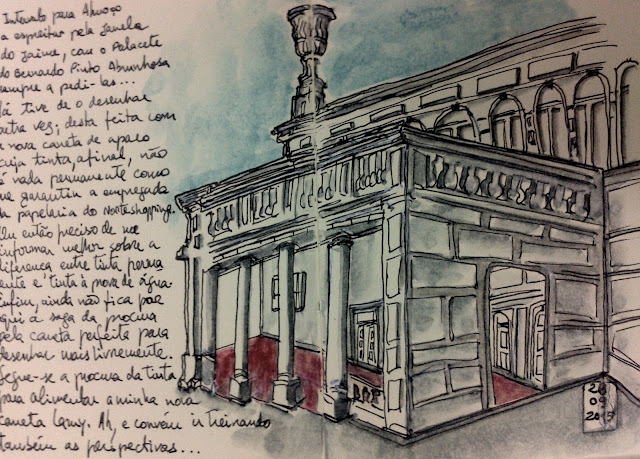 Intervalo para Almoço
a espreitar pela janela
do Jaime, com o Palacete
do Bernardo Pinto Abrunhosa
sempre a pedi-las...
Já tive de o desenhar
outra vez; desta feita com
a nova caneta de aparo
cuja tinta, afinal, não
é nada permanente como
me garantiu a empregada
da papelaria do Norteshopping.
Ou então preciso de me
informar melhor sobre a
diferença entre tinta perma
nente e tinta à prova de água.
Enfim, ainda não fica por
aqui a saga da procura
pela caneta perfeita para
desenhar mais livremente.
Segue-se a procura da tinta
para alimentar a minha nova
caneta Lamy. Ah, e convém ir treinando
também as perspectivas...
BRE
28
09
2015